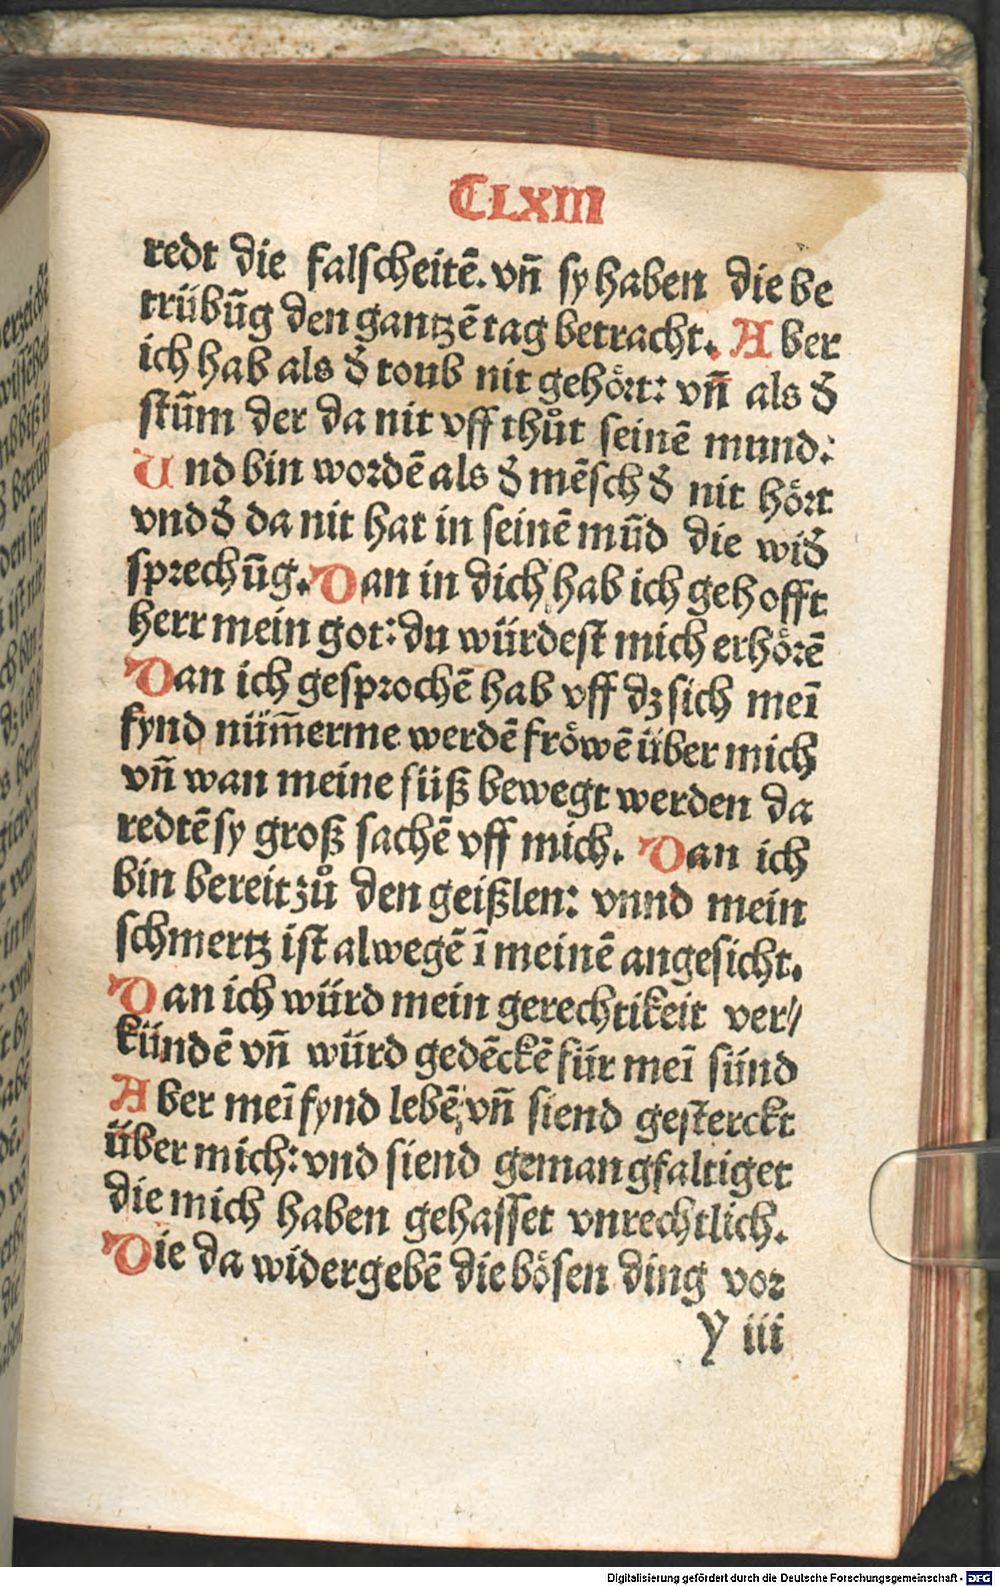 CLXIII
redt die falscheitē. vn̄ sy haben die be
trübūg den gantzē tag betracht. Aber
ich hab als d̄ toub nit gehört: vn̄ als d̄
stūm der da nit vff thůt seinē mund:
Und bin wordē als d̄ mēsch d̄ nit hört
vnd d̄ da nit hat in seinē mūd die wid̄
sprechūg. Dan in dich hab ich gehofft
herr mein got: du würdest mich erhörē
Dan ich gesprochē hab vff dz sich meī
fynd nüm̄erme werdē fröwē über mich
vn̄ wan meine füß bewegt werden da
redtē sy groß sachē vff mich. Dan ich
bin bereit zů den geißlen: vnnd mein
schmertz ist alwegē ī meinē angesicht.
Dan ich würd mein gerechtikeit ver//
kündē vn̄ würd gedēckē für meī sünd
Aber meī fynd lebē, vn̄ siend gesterckt
über mich: vnd siend gemangfaltiget
die mich haben gehasset vnrechtlich.
Die da widergebē die bösen ding vor
y iii
Digitalisierung gefördert durch die Deutsche Forschungsgemeinschaft - DFG